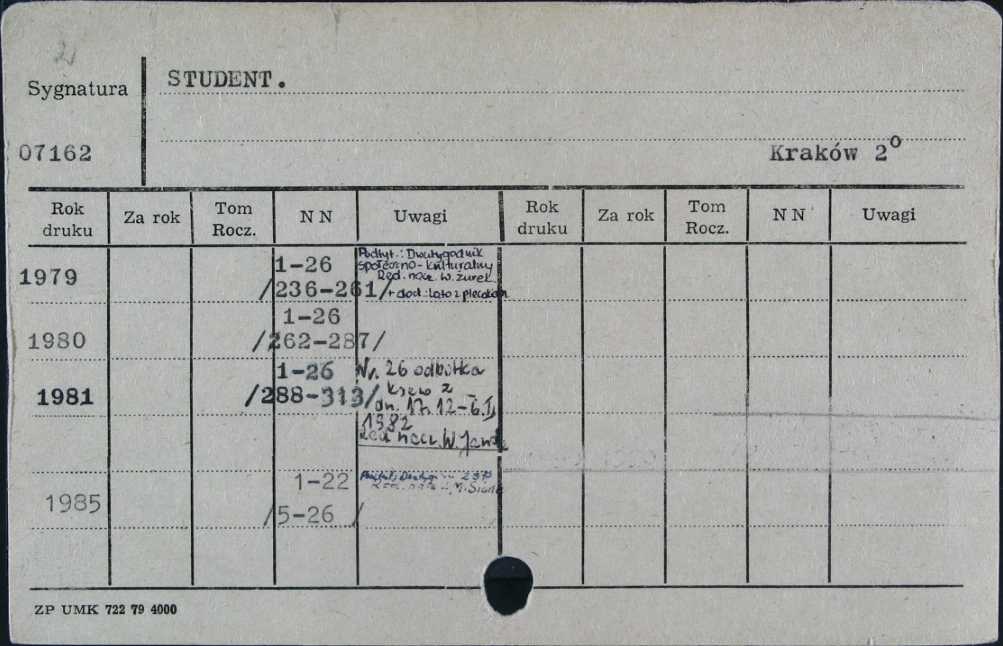 2
Sygnatura
STUDENT.
07162
Kraków 2°
Rok druku Za rok Tom Rocz. N N Uwagi Rok druku Za rok Tom Rocz. N N Uwagi
1979
1-26
/236-261/
Podtyt.: Dwutygodnik
społeczno-kulturalny
Red. nacz. W. Żurek
+ dod.: Lato z plecakiem
1980
1-26
/262-287/
1981
1-26
/288-313/
Nr. 26 odbitka
ksero z
dn. 17.12-6.I.
1982
Red. nacz. W.
1985
1-22
/5-26 /
ZP UMK 722 79 4000